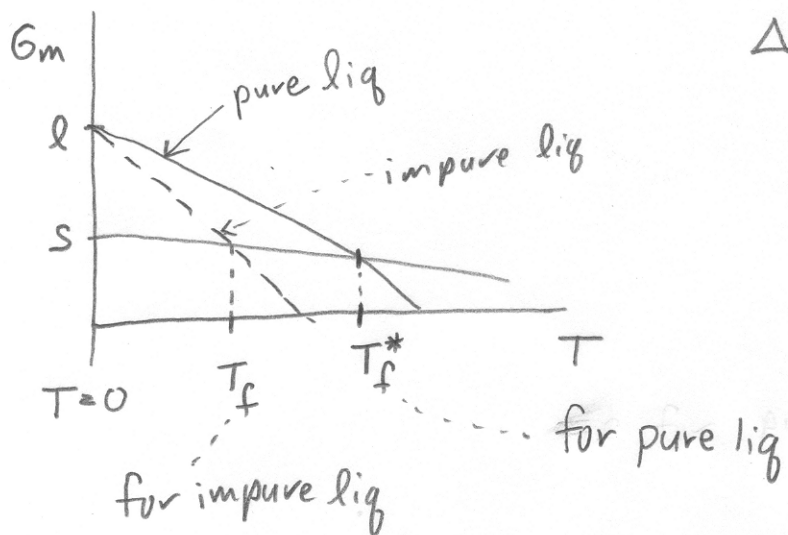 Gm
Δ
pure liq
l
impure liq
S
T=0
T_f
T_f*
T
for pure liq
for impure liq